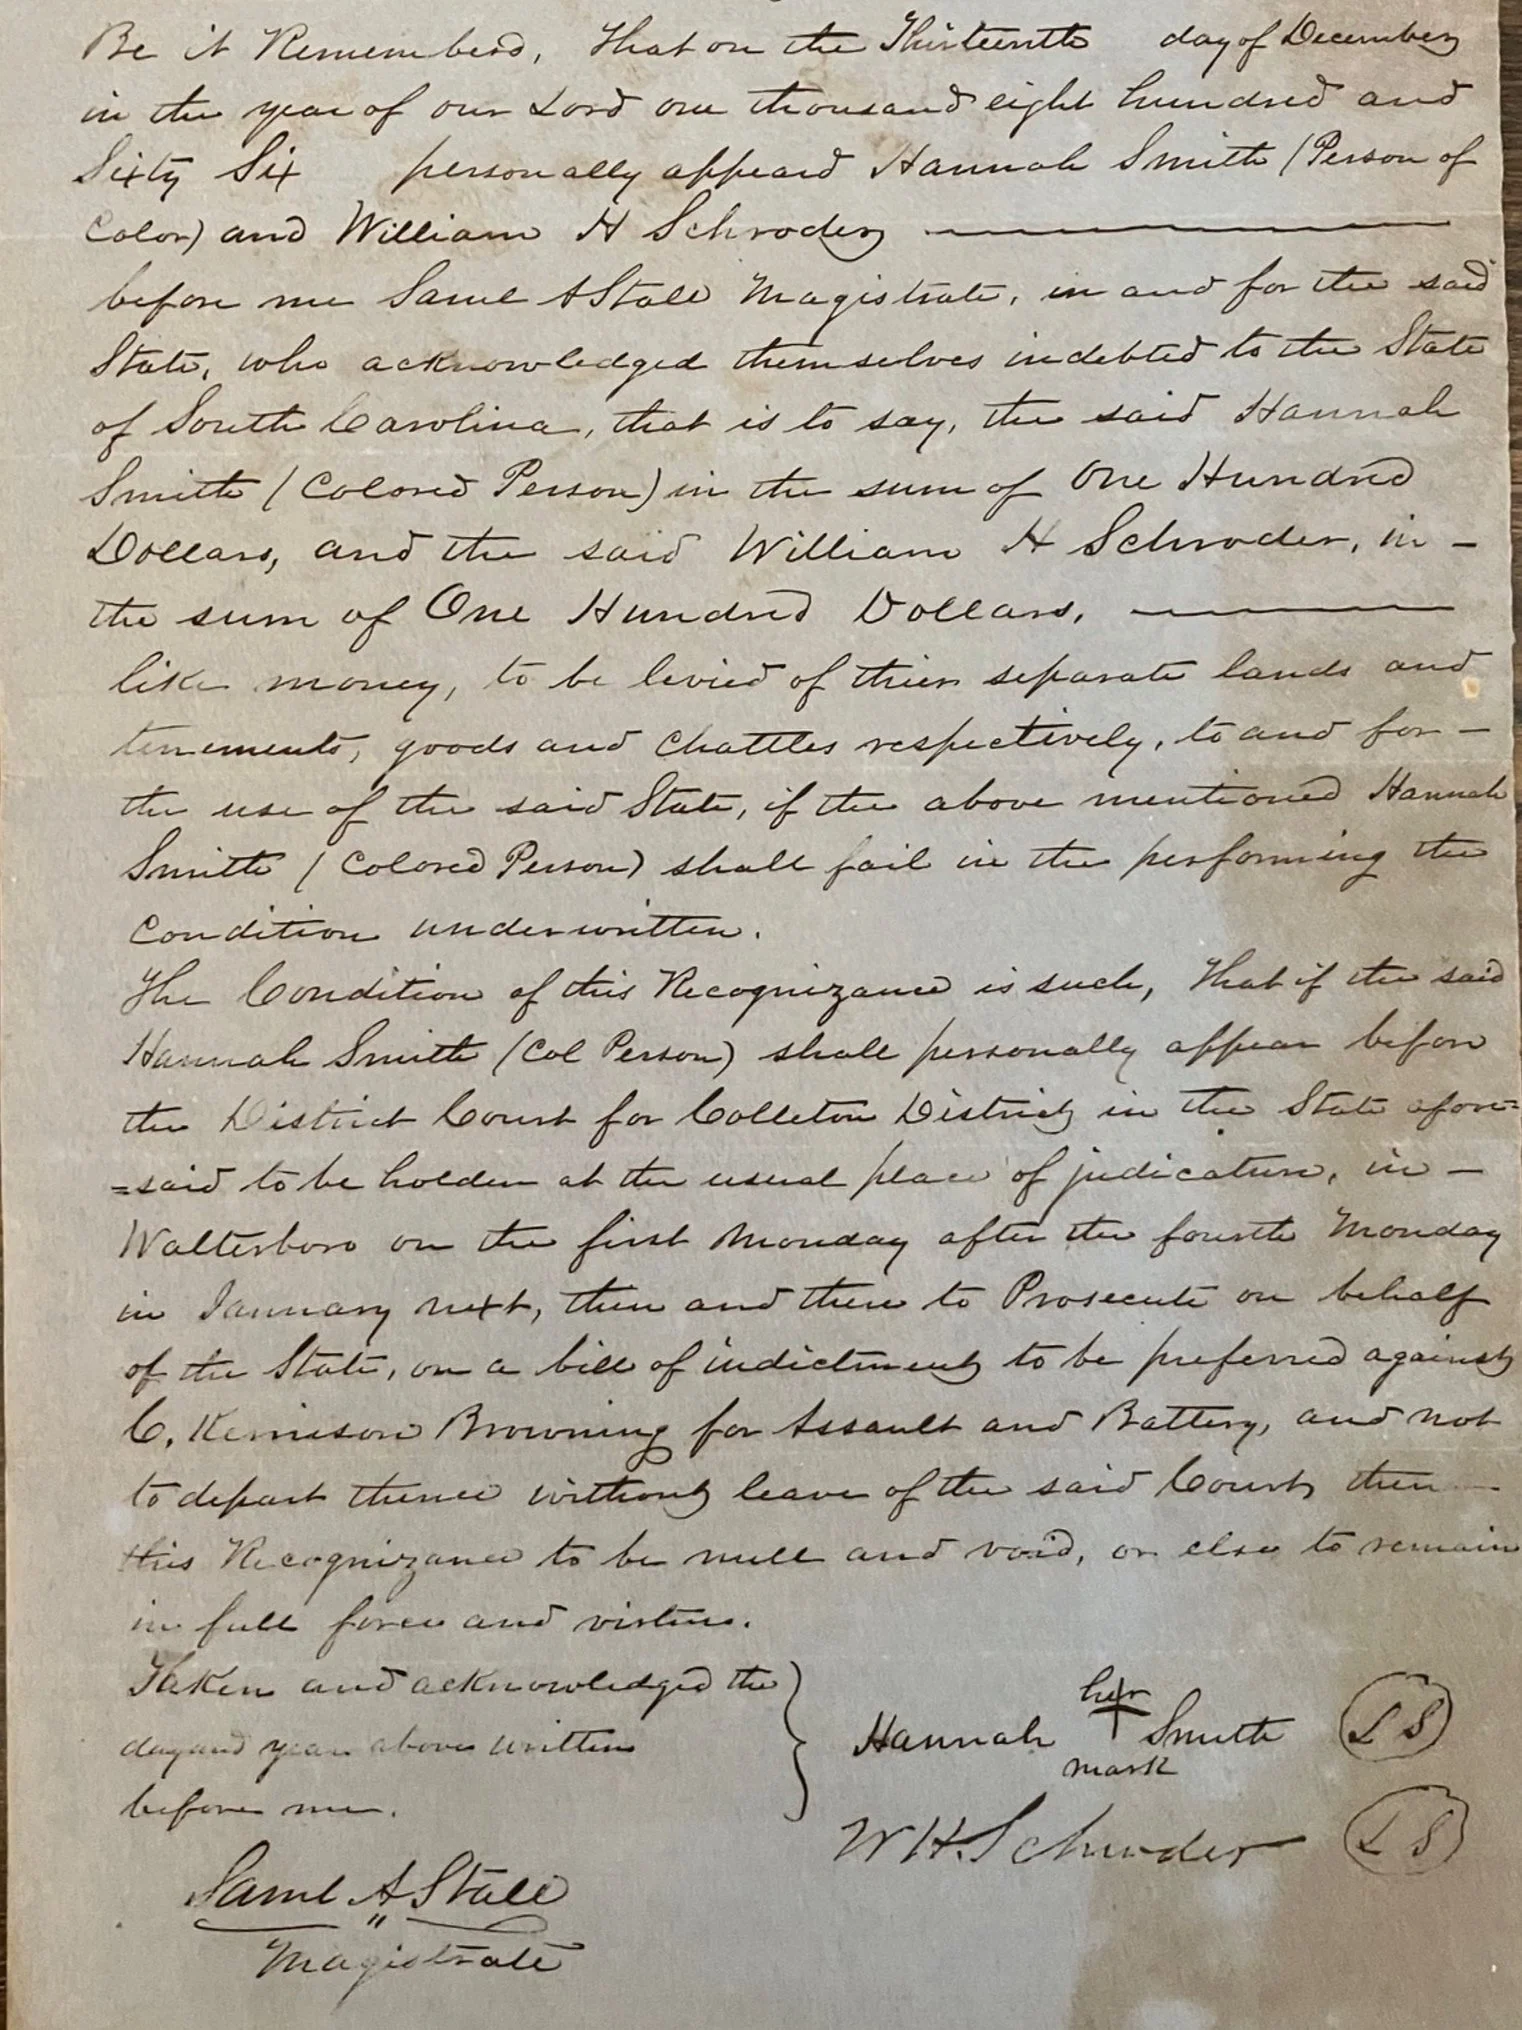 Be it Remembered, That on the Thirteenth day of December
in the year of our Lord one thousand eight hundred and
Sixty Six personally appeard Hannah Smith (Person of
Color) and William H Schroder
before me Saml A Stall Magistrate, in and for the said
State, who acknowledged themselves indebted to the State
of South Carolina, that is to say, the said Hannah
Smith (Colored Person) in the sum of One Hundred
Dollars, and the said William H Schroder, in -
the sum of One Hundred Dollars,
like money, to be levied of thier separate lands and
tenements, goods and Chattles respectively, to and for -
the use of the said State, if the above mentioned Hannah
Smith (Colored Person) shall fail in the performing the
Condition underwritten.
The Condition of this Recognizance is such, That if the said
Hannah Smith (Col Person) shall personally appear before
the District Court for Colleton District in the State afore=
=said to be holden at the usual place of judicature, in -
Walterboro on the first Monday after the fourth Monday
in January next, then and there to Prosecute on behalf
of the State, on a bill of indictment to be preferred against
C. Kennison Browning for Assault and Battery, and not
to depart thence without leave of the said Court, then
this Recognizance to be null and void, or else to remain
in full force and virtue.
Taken and acknowledged the
day and year above written
before me.
her
Hannah + Smith LS
mark
W H. Schroder LS
Saml A Stall
Magistrate